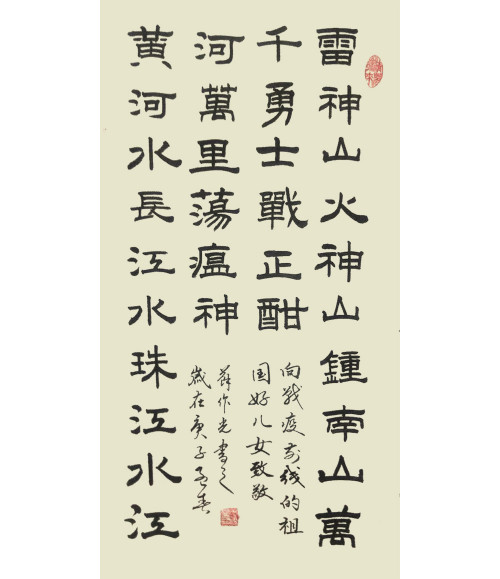 雷神山火神山鍾南山萬
千勇士戰正酣
向战疫前线的祖
国好儿女致敬
黄河水長江水珠江水江
河萬里蕩瘟神
薛作光書之
歲在庚子孟春